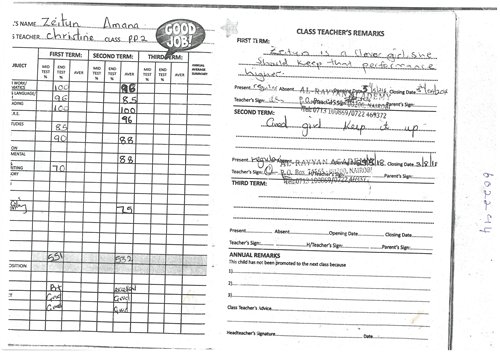 'S NAME Zeitun Amana
S TEACHER christine CLASS PP.2
GOOD JOB!
FIRST TERM: SECOND TERM: THIRD TERM:
BJECT MID TEST % END TEST % AVER MID TEST % END TEST % AVER MID TEST % END TEST % AVER ANNUAL AVERAGE SUMMARY
WORK/
MATICS 100 96
LANGUAGE/ 96 85
ADING 100 100
R.E. 96
TUDIES 85
90 88
ON
MENTAL 88
TING 70
ORY
75
551 532
OSITION
Good
Good Good
CLASS TEACHER'S REMARKS
FIRST TERM:
Zeitun is a clever girl. She
should keep that performance
higher.
Present regular Absent Opening Date Closing Date
AL-RAYYAN ACADEMY
Teacher's Sign: Parent's Sign:
Tel: 0713 100869/0722 469372
SECOND TERM:
Good girl keep it up
Present regular Absent Closing Date 3/8/18
AL-RAYYAN ACADEMY
Teacher's Sign: Parent's Sign:
P.O. Box NAIROBI
Tel: 0713 100869/0722 469372
THIRD TERM:
Present Absent Opening Date Closing Date
Teacher's Sign: H/Teacher's Sign: Parent's Sign:
ANNUAL REMARKS
This child has not been promoted to the next class because
1)
2)
3)
Class Teacher's Advice
Headteacher's Signature Date